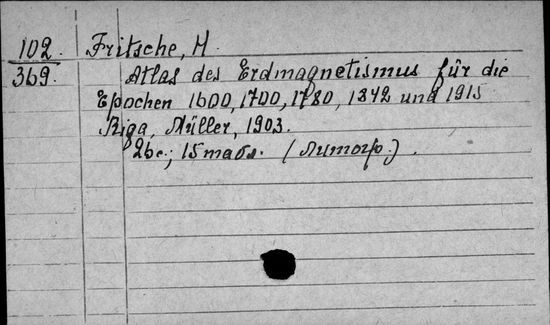 102. Fritsche, H.
369. Atlas des Erdmagnetismus für die
Epochen 1600, 1700, 1780, 1842 und 1915
Riga, Müller, 1903.
2 bc.; 15 табл. (Литогр.).